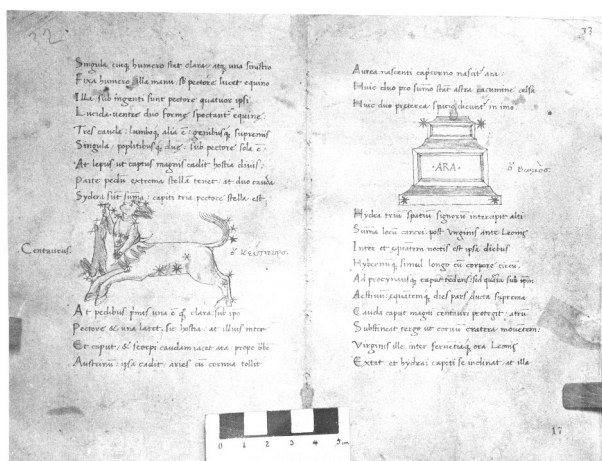 32
Singula cuiq humero stat clara: atq una sinistro
Fixa humero illa manu. sb pectore lucet equino
Illa. sub ingenti sunt pectore quatuor ipsi
Lucida ventre duo forme spectant equine:
Tres cauda: lumboq alia ē: genibusq supremis
Singula: poplitibusq due: sub pectore sola ē.
At lepus ut captus magni cadit hostia divis:
Parte pedū extrema stellā tenet: at duo cauda
Sydera sūt summa: capiti tria pectore stella est.
Centaurus.
ὁ κένταυρος.
At pedibus primis una ē q clara. sub ipso
Pectore & una latet. sic hostia: at illius inter
Et caput & scorpi caudam iacet ara: prope
Austrum ipsa cadit: aries cū cornua tollit
33
Aurea nascenti capricorno nascit ara:
Huic duo pro sumo stāt astra cacumine celsa
Huic duo preterea spatio dicunt in imo.
ARA
ὁ Βωμός.
Hydra triū spatiū signorū intercipit alti:
Suma locū cancri: post Virginis ante Leonis
Inter et equatem noctis est ipsa diebus
Hybernūq simul longo cū corpore circū.
Ad procyonāq caput tēdens: sed quāta sub ipm
Aestivū: equatemq dies pars ducta suprema
Cauda caput magni centauri protegit: atrū
Substineat tergo ut corvū cratera movētem:
Virginis ille inter fervētiaq ora Leonis
Extat et hydrai capiti se inclinat: at illa
0 1 2 3 4 5 cm
17